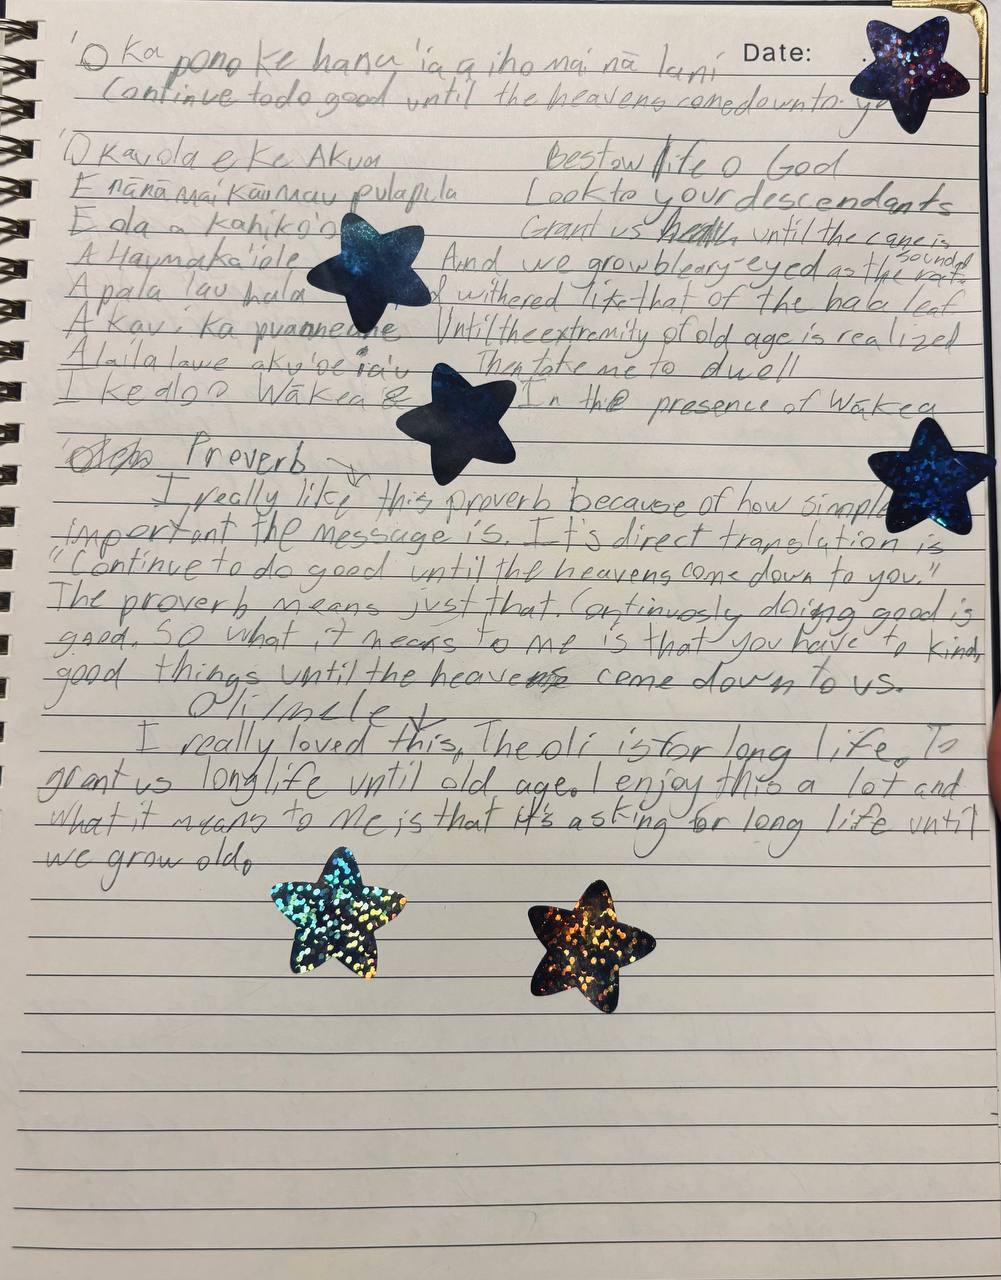 'O ka pono ke hana 'ia a iho mai nā lani
Date:
Continue to do good until the heavens come down to
'O kau ola e ke Akua
Bestow life O God
E nānā mai kāu mau pulapula
Look to your descendants
E ola a kahiko
Grant us health until the cane is sounded
A Haumaka'iole
And we grow bleary-eyed as the rat
A pala lau hala
withered like that of the hala leaf
A kau i ka puaneane
Until the extremity of old age is realized
A laila lawe aku 'oe iā'u
Then take me to dwell
I ke alo o Wākea
In the presence of Wākea
Proverb
I really like this proverb because of how simple
important the message is. It's direct translation is
"Continue to do good until the heavens come down to you."
The proverb means just that. Continuosly doing good is
good. So what it means to me is that you have to kind,
good things until the heavens come down to us.
Oli
I really loved this. The oli is for long life. To
grant us long life until old age. I enjoy this a lot and
what it means to me is that it's asking for long life until
we grow old.